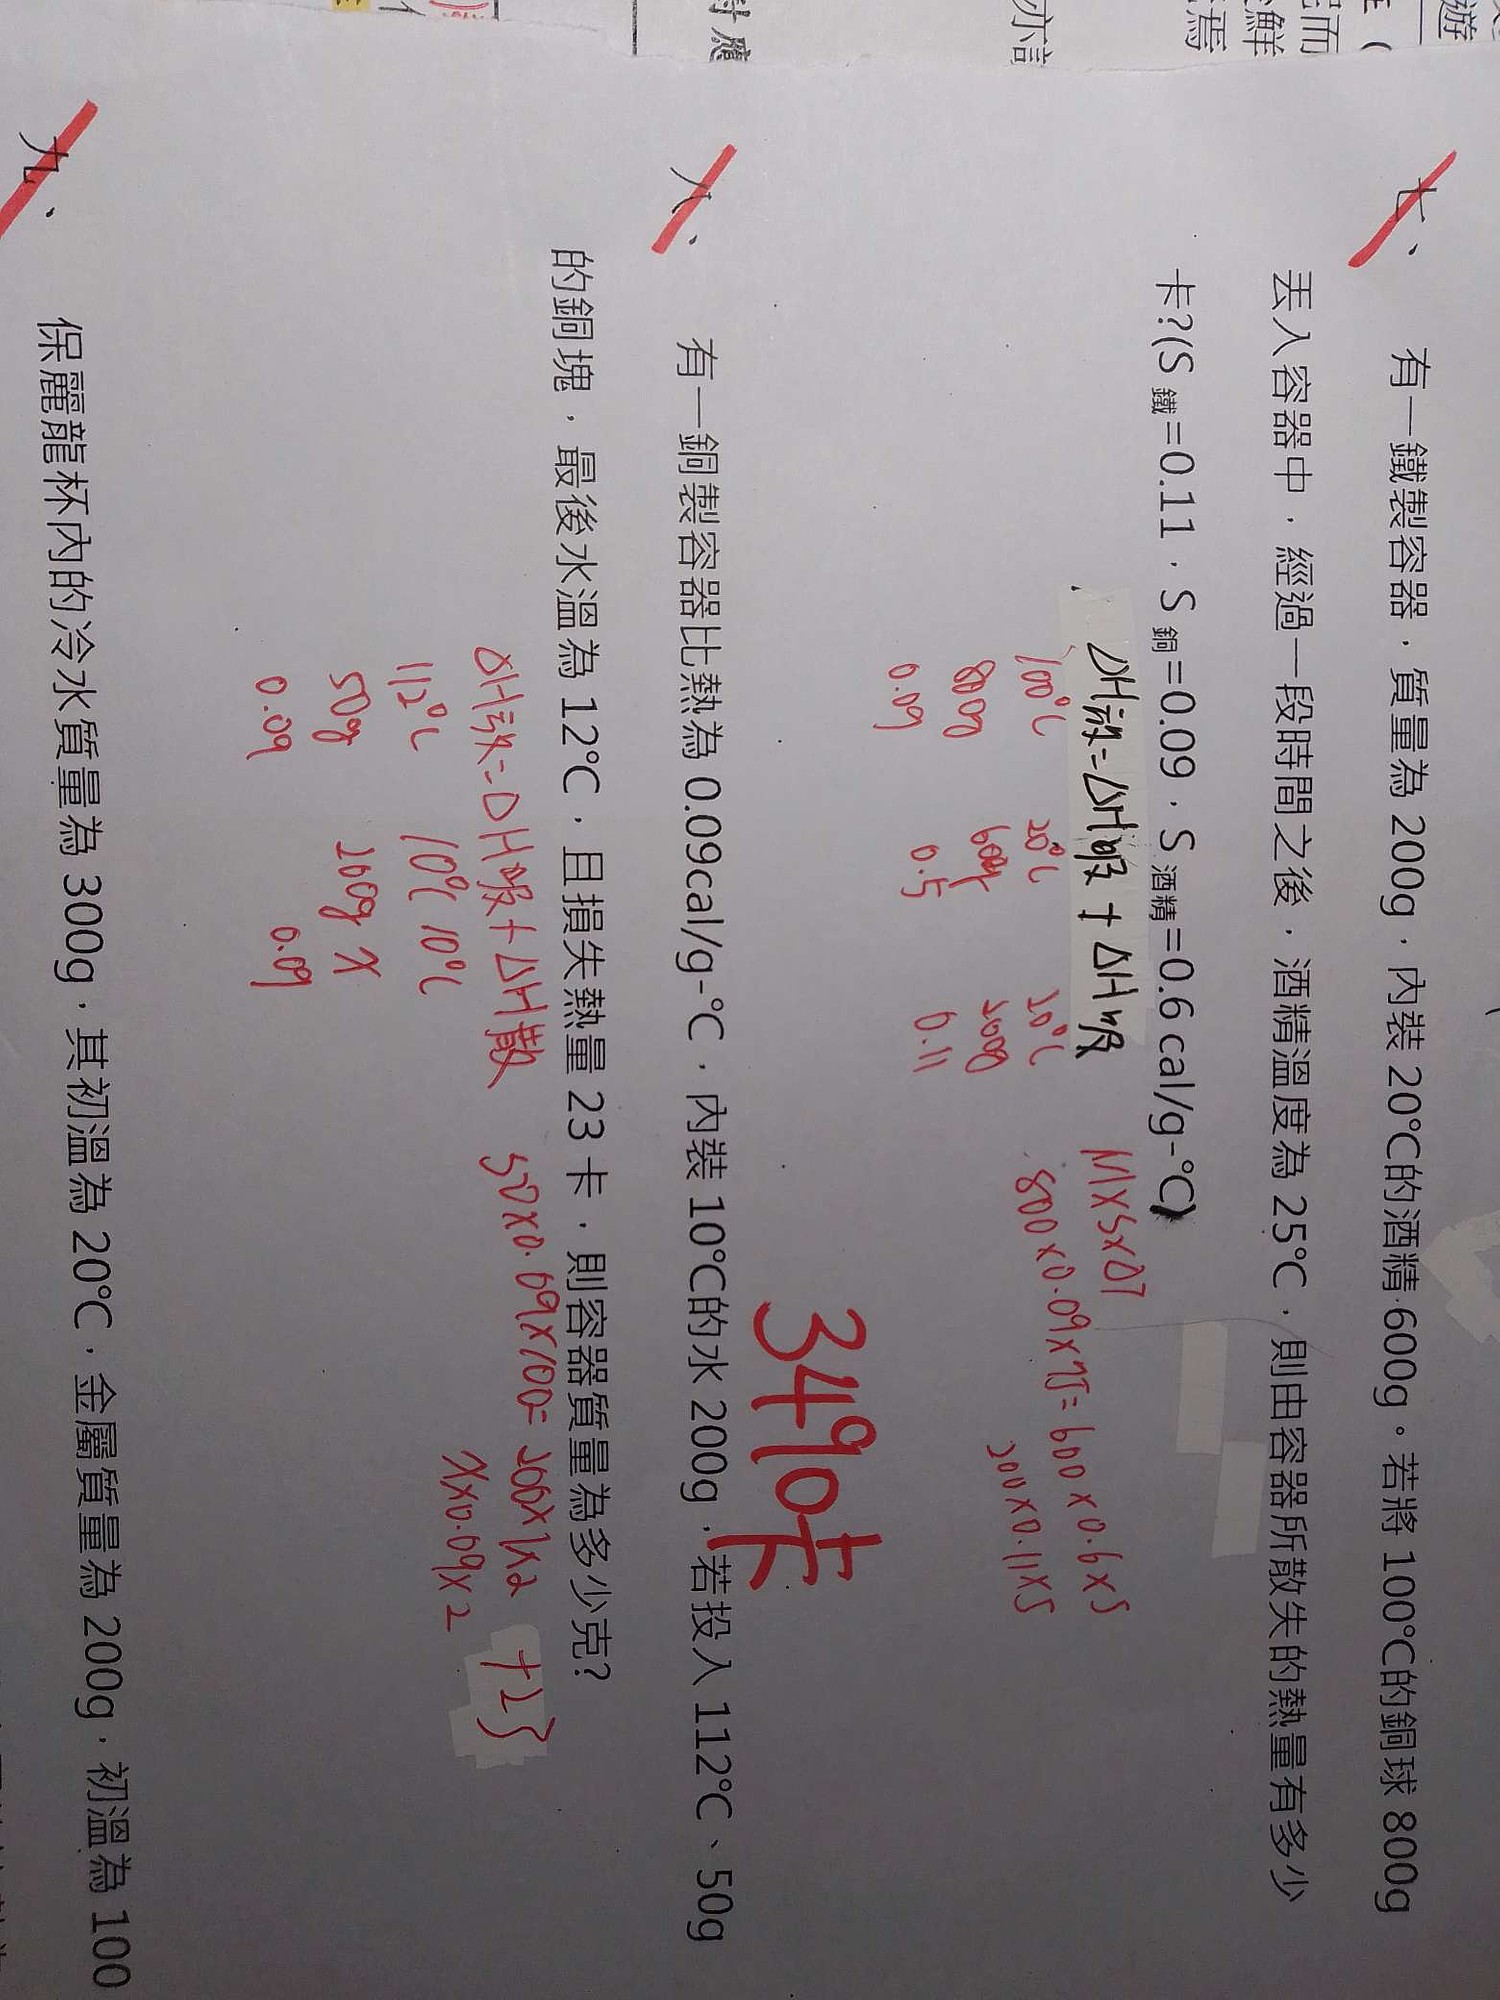 七、
有一鐵製容器，質量為 200g，內裝 20℃的酒精 600g。若將 100℃的銅球 800g
丟入容器中，經過一段時間之後，酒精溫度為 25℃，則由容器所散失的熱量有多少
卡?(S 鐵=0.11，S 銅=0.09，S 酒精=0.6 cal/g-℃)
ΔH放=ΔH吸+ΔH吸
100℃ 20℃ 20℃
800g 600g 200g
0.09 0.5 0.11
M×S×ΔT
800×0.09×75=600×0.6×5
200×0.11×5
3490卡
八、
有一銅製容器比熱為 0.09cal/g-℃，內裝 10℃的水 200g，若投入 112℃、50g
的銅塊，最後水溫為 12℃，且損失熱量 23 卡，則容器質量為多少克?
ΔH放=ΔH吸+ΔH散
112℃ 10℃ 10℃
50g 200g x
0.09 0.09
50×0.09×100=200×1×2 +23
x×0.09×2
九、
保麗龍杯內的冷水質量為 300g，其初溫為 20℃，金屬質量為 200g，初溫為 100